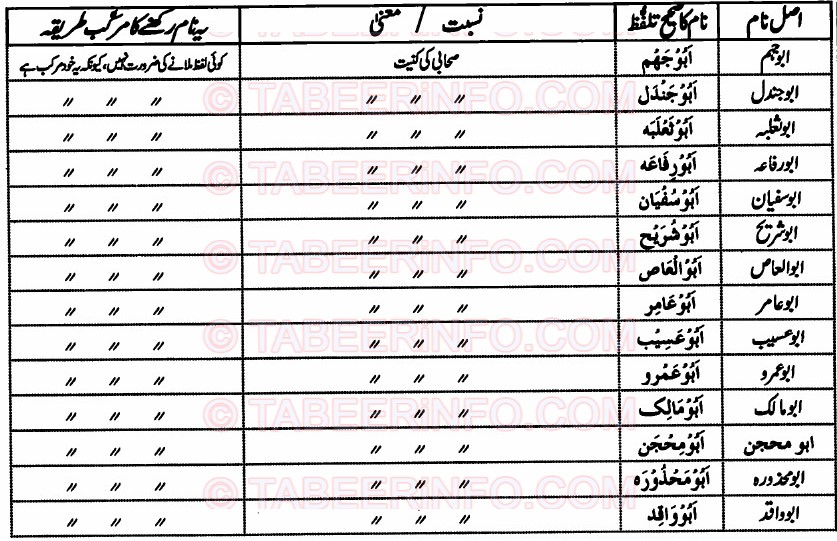 اصل نام	نام کا صحیح تلفظ	نسبت / معنیٰ	یہ نام رکھنے کا مرکب طریقہ
ابوجہم	اَبُوْجَهْم	صحابی کی کنیت	کوئی لفظ ملانے کی ضرورت نہیں، کیونکہ یہ خود مرکب ہے
ابوجندل	اَبُوْجَنْدَل	〃 〃 〃	〃 〃 〃
ابوثعلبہ	اَبُوْثَعْلَبَه	〃 〃 〃	〃 〃 〃
ابورفاعہ	اَبُوْرِفَاعَه	〃 〃 〃	〃 〃 〃
ابوسفیان	اَبُوْسُفْيَان	〃 〃 〃	〃 〃 〃
ابوشریح	اَبُوْشُرَيْح	〃 〃 〃	〃 〃 〃
ابوالعاص	اَبُوْالْعَاص	〃 〃 〃	〃 〃 〃
ابوعامر	اَبُوْعَامِر	〃 〃 〃	〃 〃 〃
ابوعسیب	اَبُوْعَسِيْب	〃 〃 〃	〃 〃 〃
ابوعمرو	اَبُوْعَمْرو	〃 〃 〃	〃 〃 〃
ابومالک	اَبُوْمَالِک	〃 〃 〃	〃 〃 〃
ابو محجن	اَبُوْمِحْجَن	〃 〃 〃	〃 〃 〃
ابومحذورہ	اَبُوْمَحْذُوْرَه	〃 〃 〃	〃 〃 〃
ابوواقد	اَبُوْوَاقِد	〃 〃 〃	〃 〃 〃
© TABEERiNFO.COM
© TABEERiNFO.COM
© TABEERiNFO.COM
© TABEERiNFO.COM
© TABEERiNFO.COM
© TABEERiNFO.COM